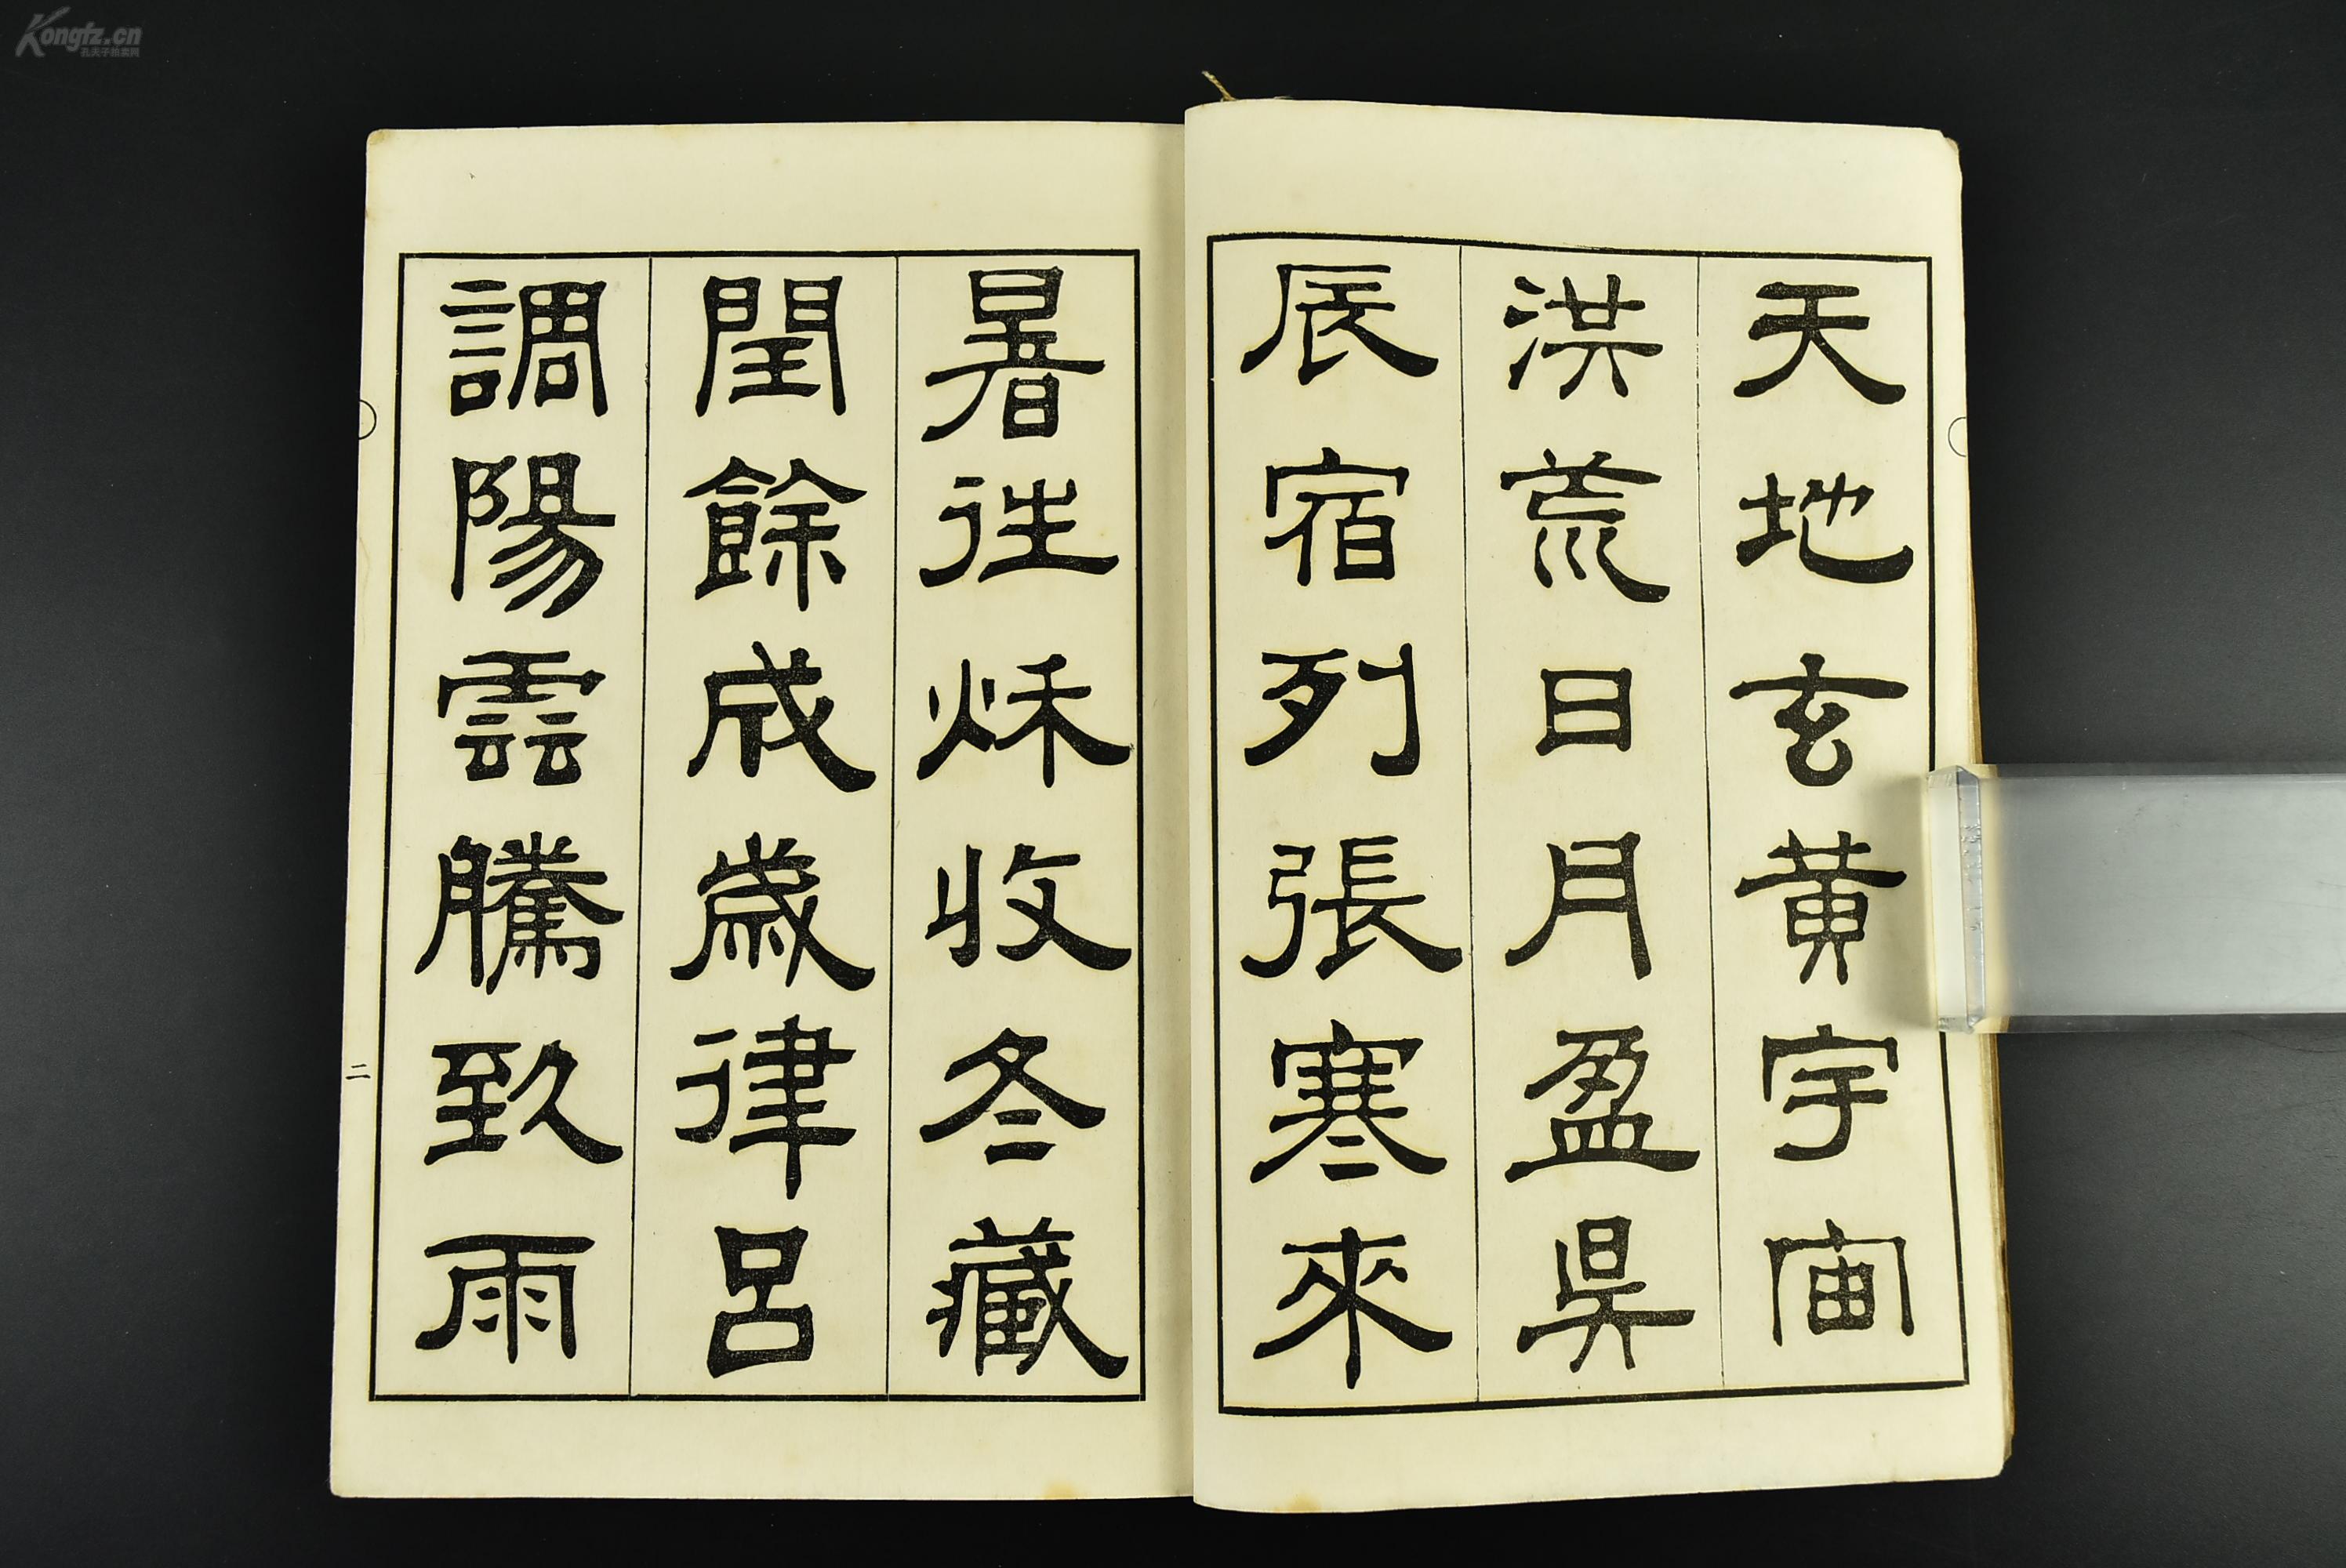 Kongfz.cn
孔夫子拍卖网
天地玄黃宇宙
洪荒日月盈昃
辰宿列張寒來
暑往秌收冬藏
閏餘成歲律呂
調陽雲騰致雨
二